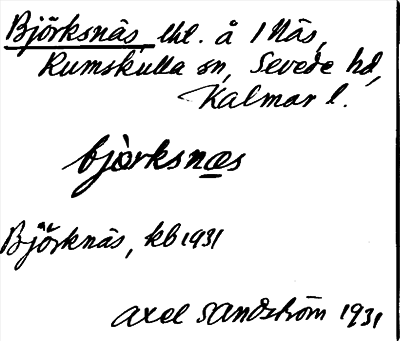 Björksnäs lht. å 1 Näs,
Rumskulla sn, Sevede hd,
Kalmar l.
bjòrksnæs
Björknäs, kb 1931
Axel Sandström 1931